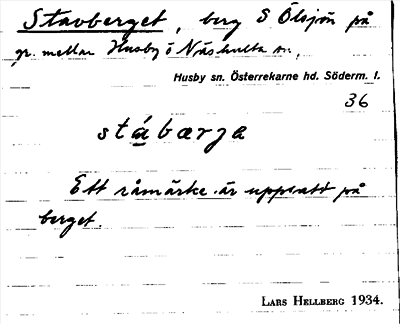 Stavberget, berg S Ölsjön på
gr. mellan Husby o Näshulta sn.,
Husby sn. Österrekarne hd. Söderm. l.
36
stábærja
Ett råmärke är uppsatt på
berget.
LARS HELLBERG 1934.